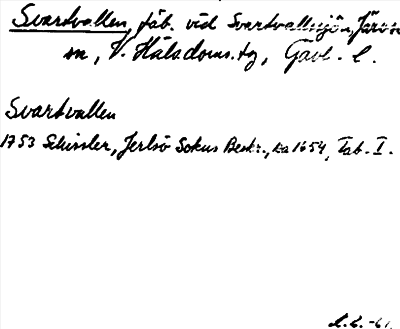 Svartvallen, fäb. vid Svartvallsjön, Järvsö
sn, V. Hälsdoms. tg, Gävl. l.
Svartvallen
1753 Schissler, Jerlsö Sokns Beskr., ka 1654, Tab. I.